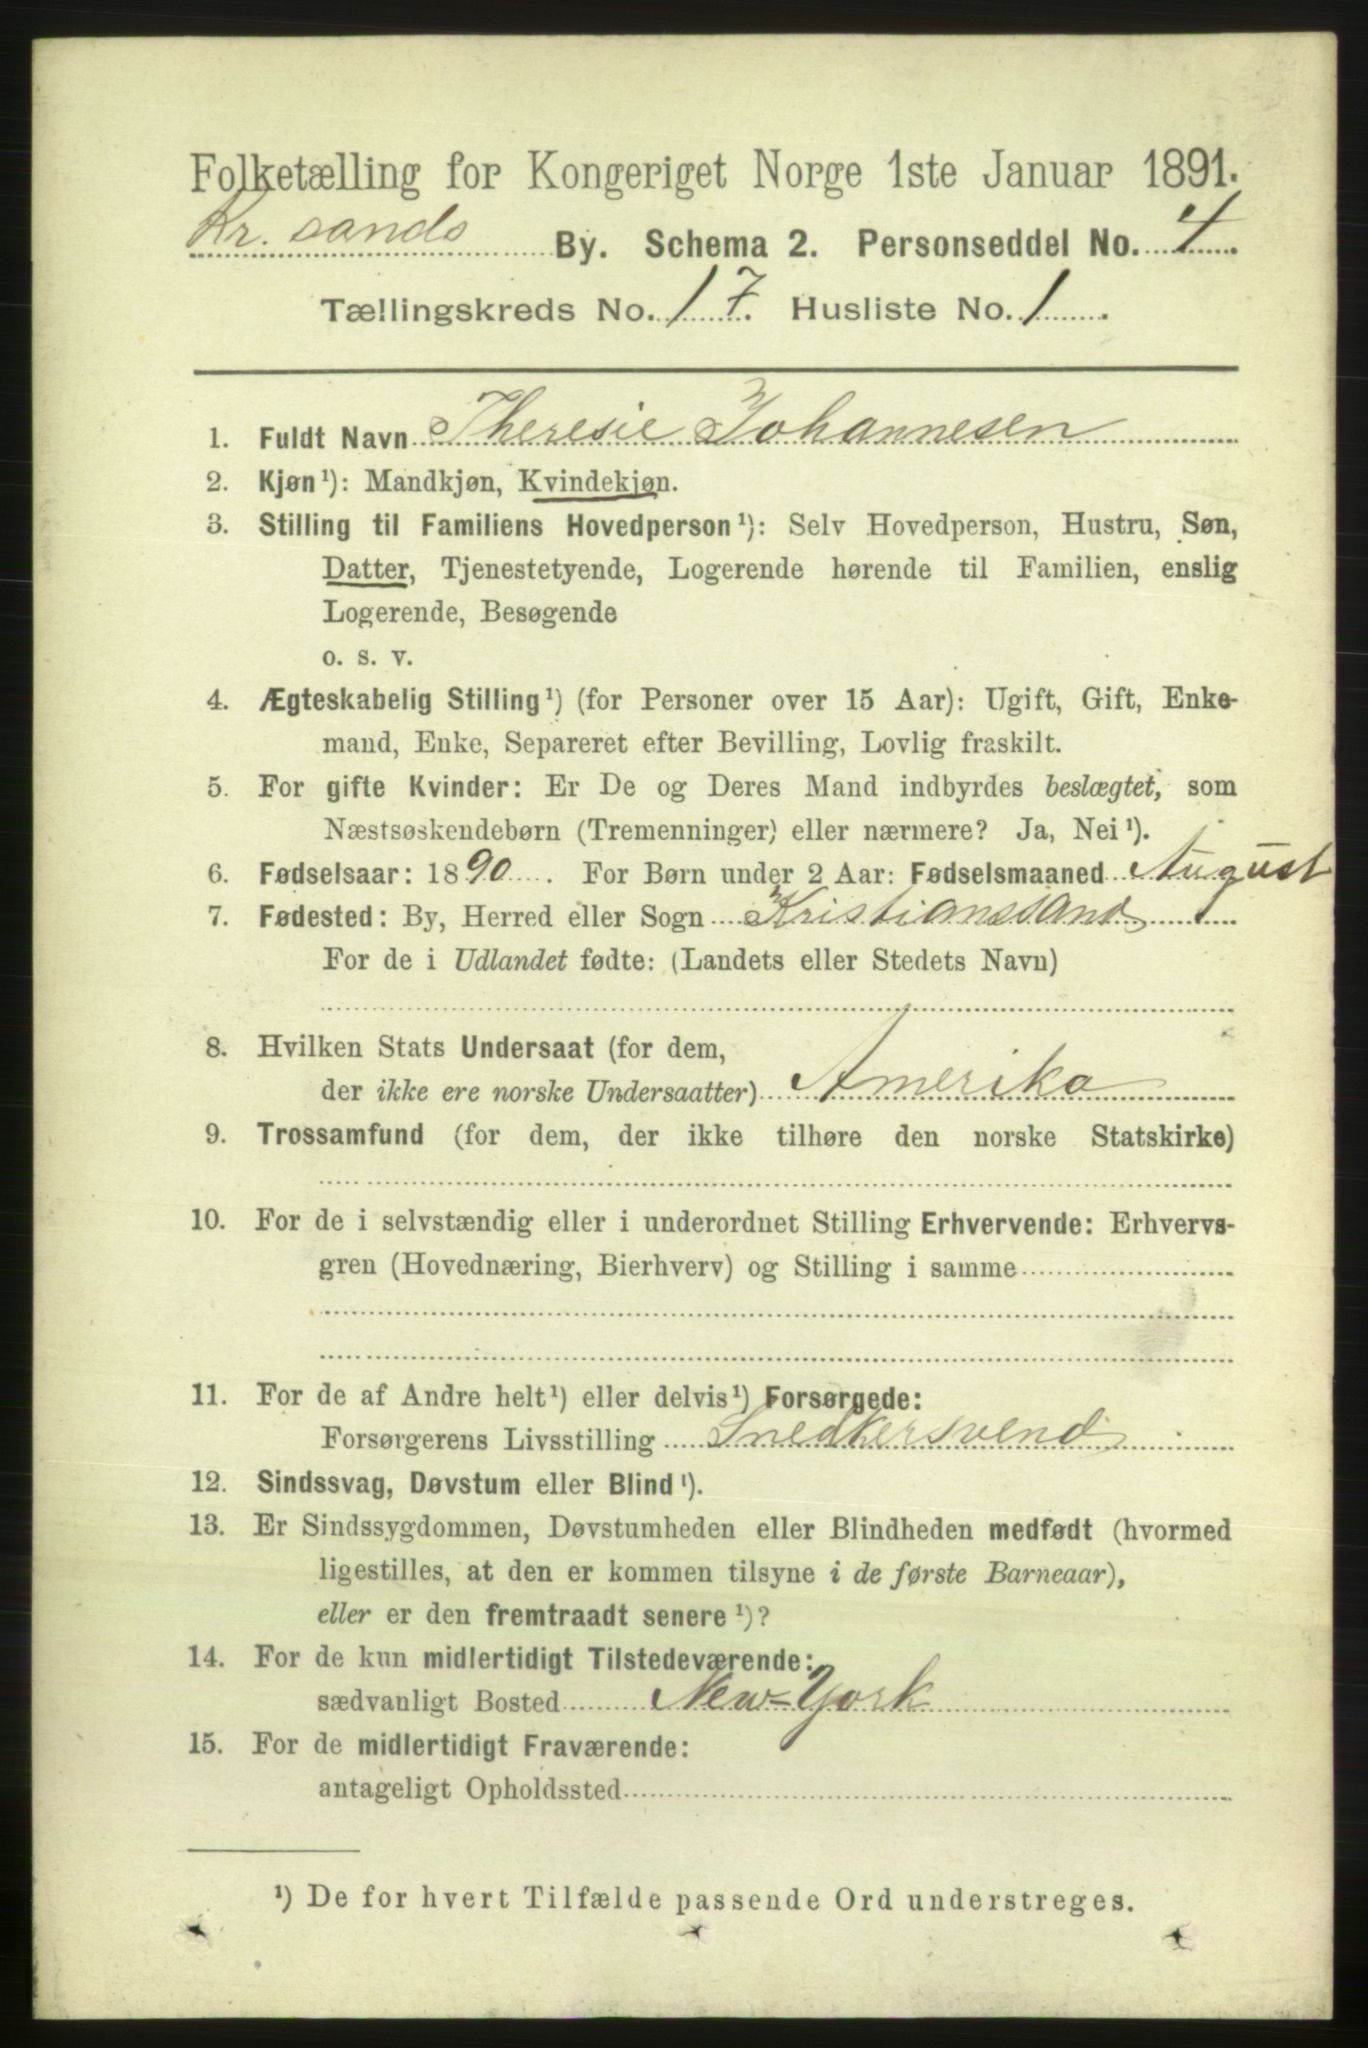 Folketælling for Kongeriget Norge 1ste Januar 1891.
Kr. sands By. Schema 2. Personseddel No. 4.
Tællingskreds No. 17. Husliste No. 1.
1. Fuldt Navn Theresie Johannesen
2. Kjøn ¹): Mandkjøn, Kvindekjøn.
3. Stilling til Familiens Hovedperson ¹): Selv Hovedperson, Hustru, Søn,
Datter, Tjenestetyende, Logerende hørende til Familien, enslig
Logerende, Besøgende
o. s. v.
4. Ægteskabelig Stilling ¹) (for Personer over 15 Aar): Ugift, Gift, Enke-
mand, Enke, Separeret efter Bevilling, Lovlig fraskilt.
5. For gifte Kvinder: Er De og Deres Mand indbyrdes beslægtet, som
Næstsøskendebørn (Tremenninger) eller nærmere? Ja, Nei ¹).
6. Fødselsaar: 1890. For Børn under 2 Aar: Fødselsmaaned August
7. Fødested: By, Herred eller Sogn Kristianssand
For de i Udlandet fødte: (Landets eller Stedets Navn)
8. Hvilken Stats Undersaat (for dem,
der ikke ere norske Undersaatter) Amerika
9. Trossamfund (for dem, der ikke tilhøre den norske Statskirke)
10. For de i selvstændig eller i underordnet Stilling Erhvervende: Erhvervs-
gren (Hovednæring, Bierhverv) og Stilling i samme
11. For de af Andre helt ¹) eller delvis ¹) Forsørgede:
Forsørgerens Livsstilling Snedkersvend
12. Sindssvag, Døvstum eller Blind ¹).
13. Er Sindssygdommen, Døvstumheden eller Blindheden medfødt (hvormed
ligestilles, at den er kommen tilsyne i de første Barneaar),
eller er den fremtraadt senere ¹)?
14. For de kun midlertidigt Tilstedeværende:
sædvanligt Bosted New-York
15. For de midlertidigt Fraværende:
antageligt Opholdssted
¹) De for hvert Tilfælde passende Ord understreges.